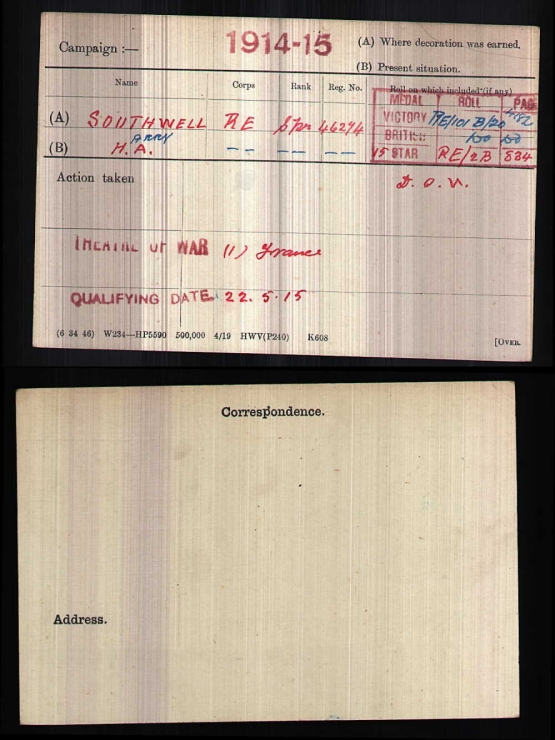 Campaign :— 1914-15 (A) Where decoration was earned.
(B) Present situation.
Name Corps Rank Reg. No. Roll on which included (if any)
MEDAL ROLL PAGE
(A) SOUTHWELL RE Spr 46274
VICTORY RE/101 B/20
BRITISH do do
(B) H.A. ARRY — — — — — —
15 STAR RE/2B 834
Action taken D.O.W.
THEATRE OF WAR (1) France
QUALIFYING DATE 22.5.15
(6 34 46) W234—HP5590 500,000 4/19 HWV(P240) K608
[OVER.
Correspondence.
Address.